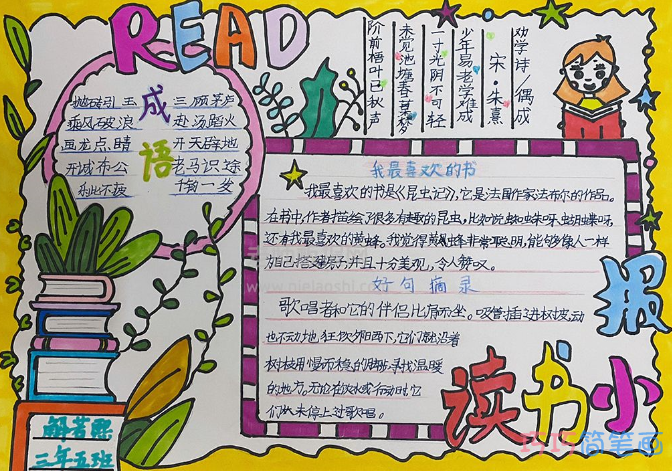 READ
成语
抛砖引玉 三顾茅庐
乘风破浪 赴汤蹈火
画龙点睛 开天辟地
开诚布公 老马识途
乐此不疲 千钧一发
劝学诗/偶成
宋·朱熹
少年易老学难成
一寸光阴不可轻
未觉池塘春草梦
阶前梧叶已秋声
我最喜欢的书
我最喜欢的书是《昆虫记》,它是法国作家法布尔的作品。
在书中,作者描绘了很多有趣的昆虫,比如说蜘蛛呀、蝴蝶呀,
还有我最喜欢的黄蜂。我觉得黄蜂非常聪明,能够像人一样
为自己搭建房子,并且十分美观,令人赞叹。
好句摘录
歌唱者和它的伴侣比肩而坐。吸管插进树皮,动
也不动地狂饮,夕阳西下,它们就沿着
树枝用慢而稳的脚步寻找温暖
的地方。无论在饮水或行动时,它
们从未停止过歌唱。
读书小报
三年五班
www.nielaoshi.com
巧巧简笔画